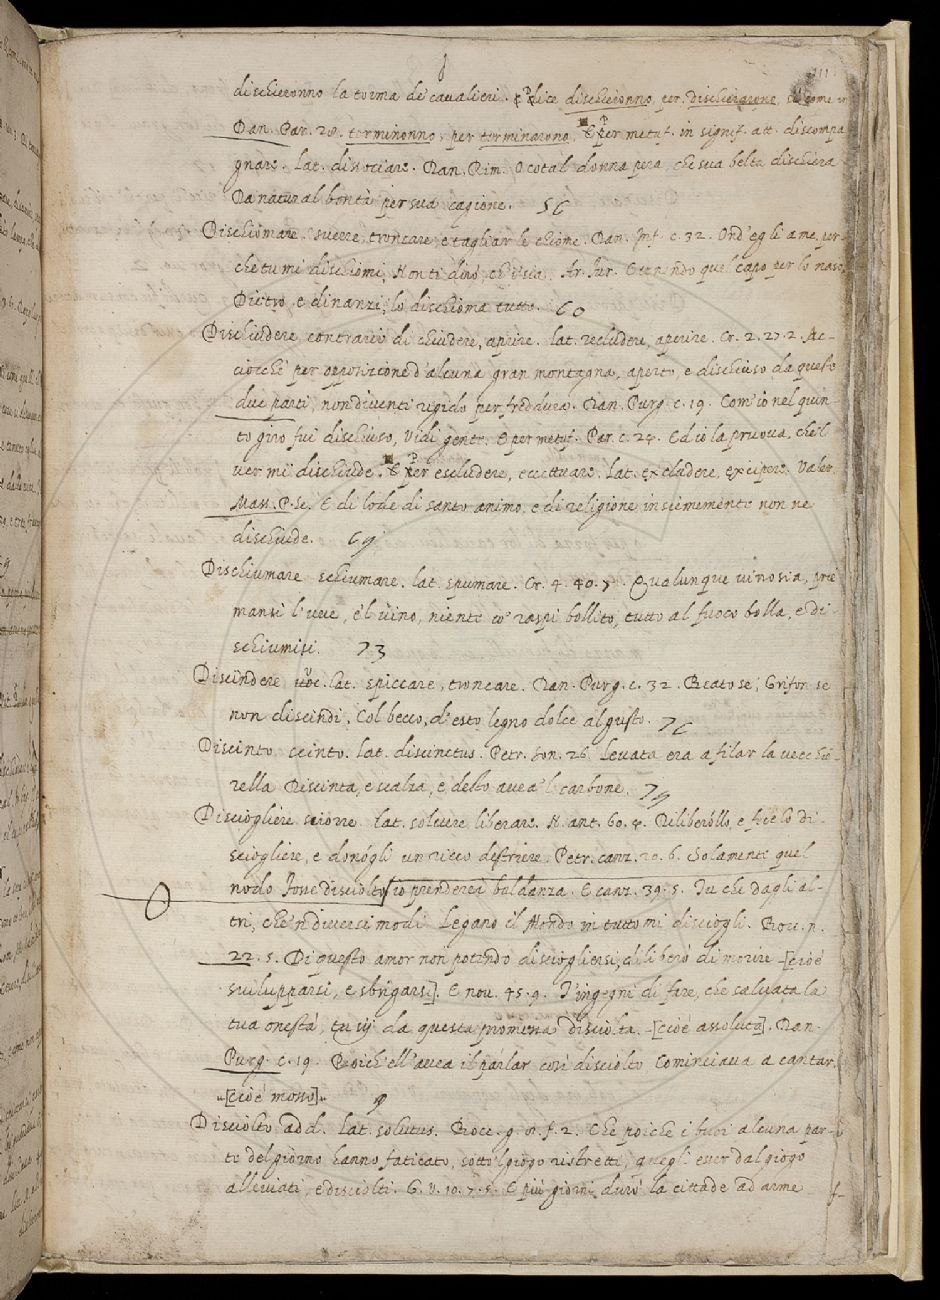 dischieronno la torma de cavalieri. dice dischieronno, per dischierarono, si come in
Dan. Par. 28. terminonno, per terminarono. E per metaf. in signif. att. discompa
gnare. lat. dissociare. Dan. Rim. O cotal donna pera, che sua beltà dischiera
Da natural bontà per sua cagione. 56
Dischiomare. svere, troncare, e tagliar le chiome. Dan. Inf. c. 32. Ond' egli a me, per-
che tu mi dischiomi, Non ti dirò, ch' i' sia. Ar. Fur. E tenendo quel capo per lo naso,
Dietro, e dinanzi, lo dischioma tutto. 60
Dischiudere contrario di chiudere, aprire. lat. recludere, aperire. Cr. 2. 27. 2. Ac-
ciocchè per opposizione d' alcuna gran montagna, aperto, e dischiuso da queste
due parti, non diventi rigido per freddura. Dan. Purg. c. 19. Com' io nel quin-
to giro fui dischiuso, Vidi gente. E per metaf. Par. c. 24. Ed io la pruova, che 'l
ver mi dischiude. E per escludere, eccettuare. lat. excludere, excipere. Valer.
Mass. P. Se. E di lode di santo animo, e di religione insiememente non ne
dischiude. 69
Dischiumare schiumare. lat. spumare. Cr. 4. 40. 7. Qualunque vino sia, prie
mansi l' uve, e 'l vino, niente co' raspi bollito, tutto al fuoco bolla, e di-
schiumisi. 73
Discindere voc. lat. spiccare, troncare. Dan. Purg. c. 32. Beato se', Grifon se
non discindi, Col becco, d' esto legno dolce al gusto. 76
Discinto. scinto. lat. discinctus. Petr. son. 26. Levata era a filar la vecchie
rella Discinta, e scalza, e desto avea 'l carbone. 79
Disciogliere sciorre lat. solvere liberare. N. ant. 60. 4. Riliberollo, e fecelo di-
sciogliere, e donógli un ricco destriere. Petr. canz. 20. 6. Solamente quel
nodo Fosse disciolto, io prenderei baldanza. E canz. 39. 5. Tu che dagli al-
tri, che 'n diversi modi Legano il Mondo in tutto mi disciogli. Bocc. n.
22. 5. Di questo amor non potendo disciogliersi, diliberò di morire [cioè
svilupparsi, e sbrigarsi]. E nov. 45. 9. T' ingegni di fare, che salvata la
tua onestà, tu sij da questa promessa disciolta. [cioè assoluta]. Dan.
Purg. c. 19. Poich' ell' avea il parlar così disciolto Cominciava a cantar.
[cioè mosso]
Disciolto add. lat. solutus. Bocc. g. 8. f. 2. Che poiche i buoi alcuna par-
te del giorno hanno faticato, sotto 'l giogo ristretti, quegli esser dal giogo
alleviati, e disciolti. G. V. 10. 7. 5. E più giorni durò la cittade ad arme